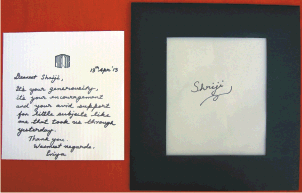 13th Apr '13
Dearest Shriji,
It's your generousity,
it's your encouragement
and your avid support
for little subjects like
me that took us through
yesterday.
Thank you.
Warmest regards.
Priya
Shriji